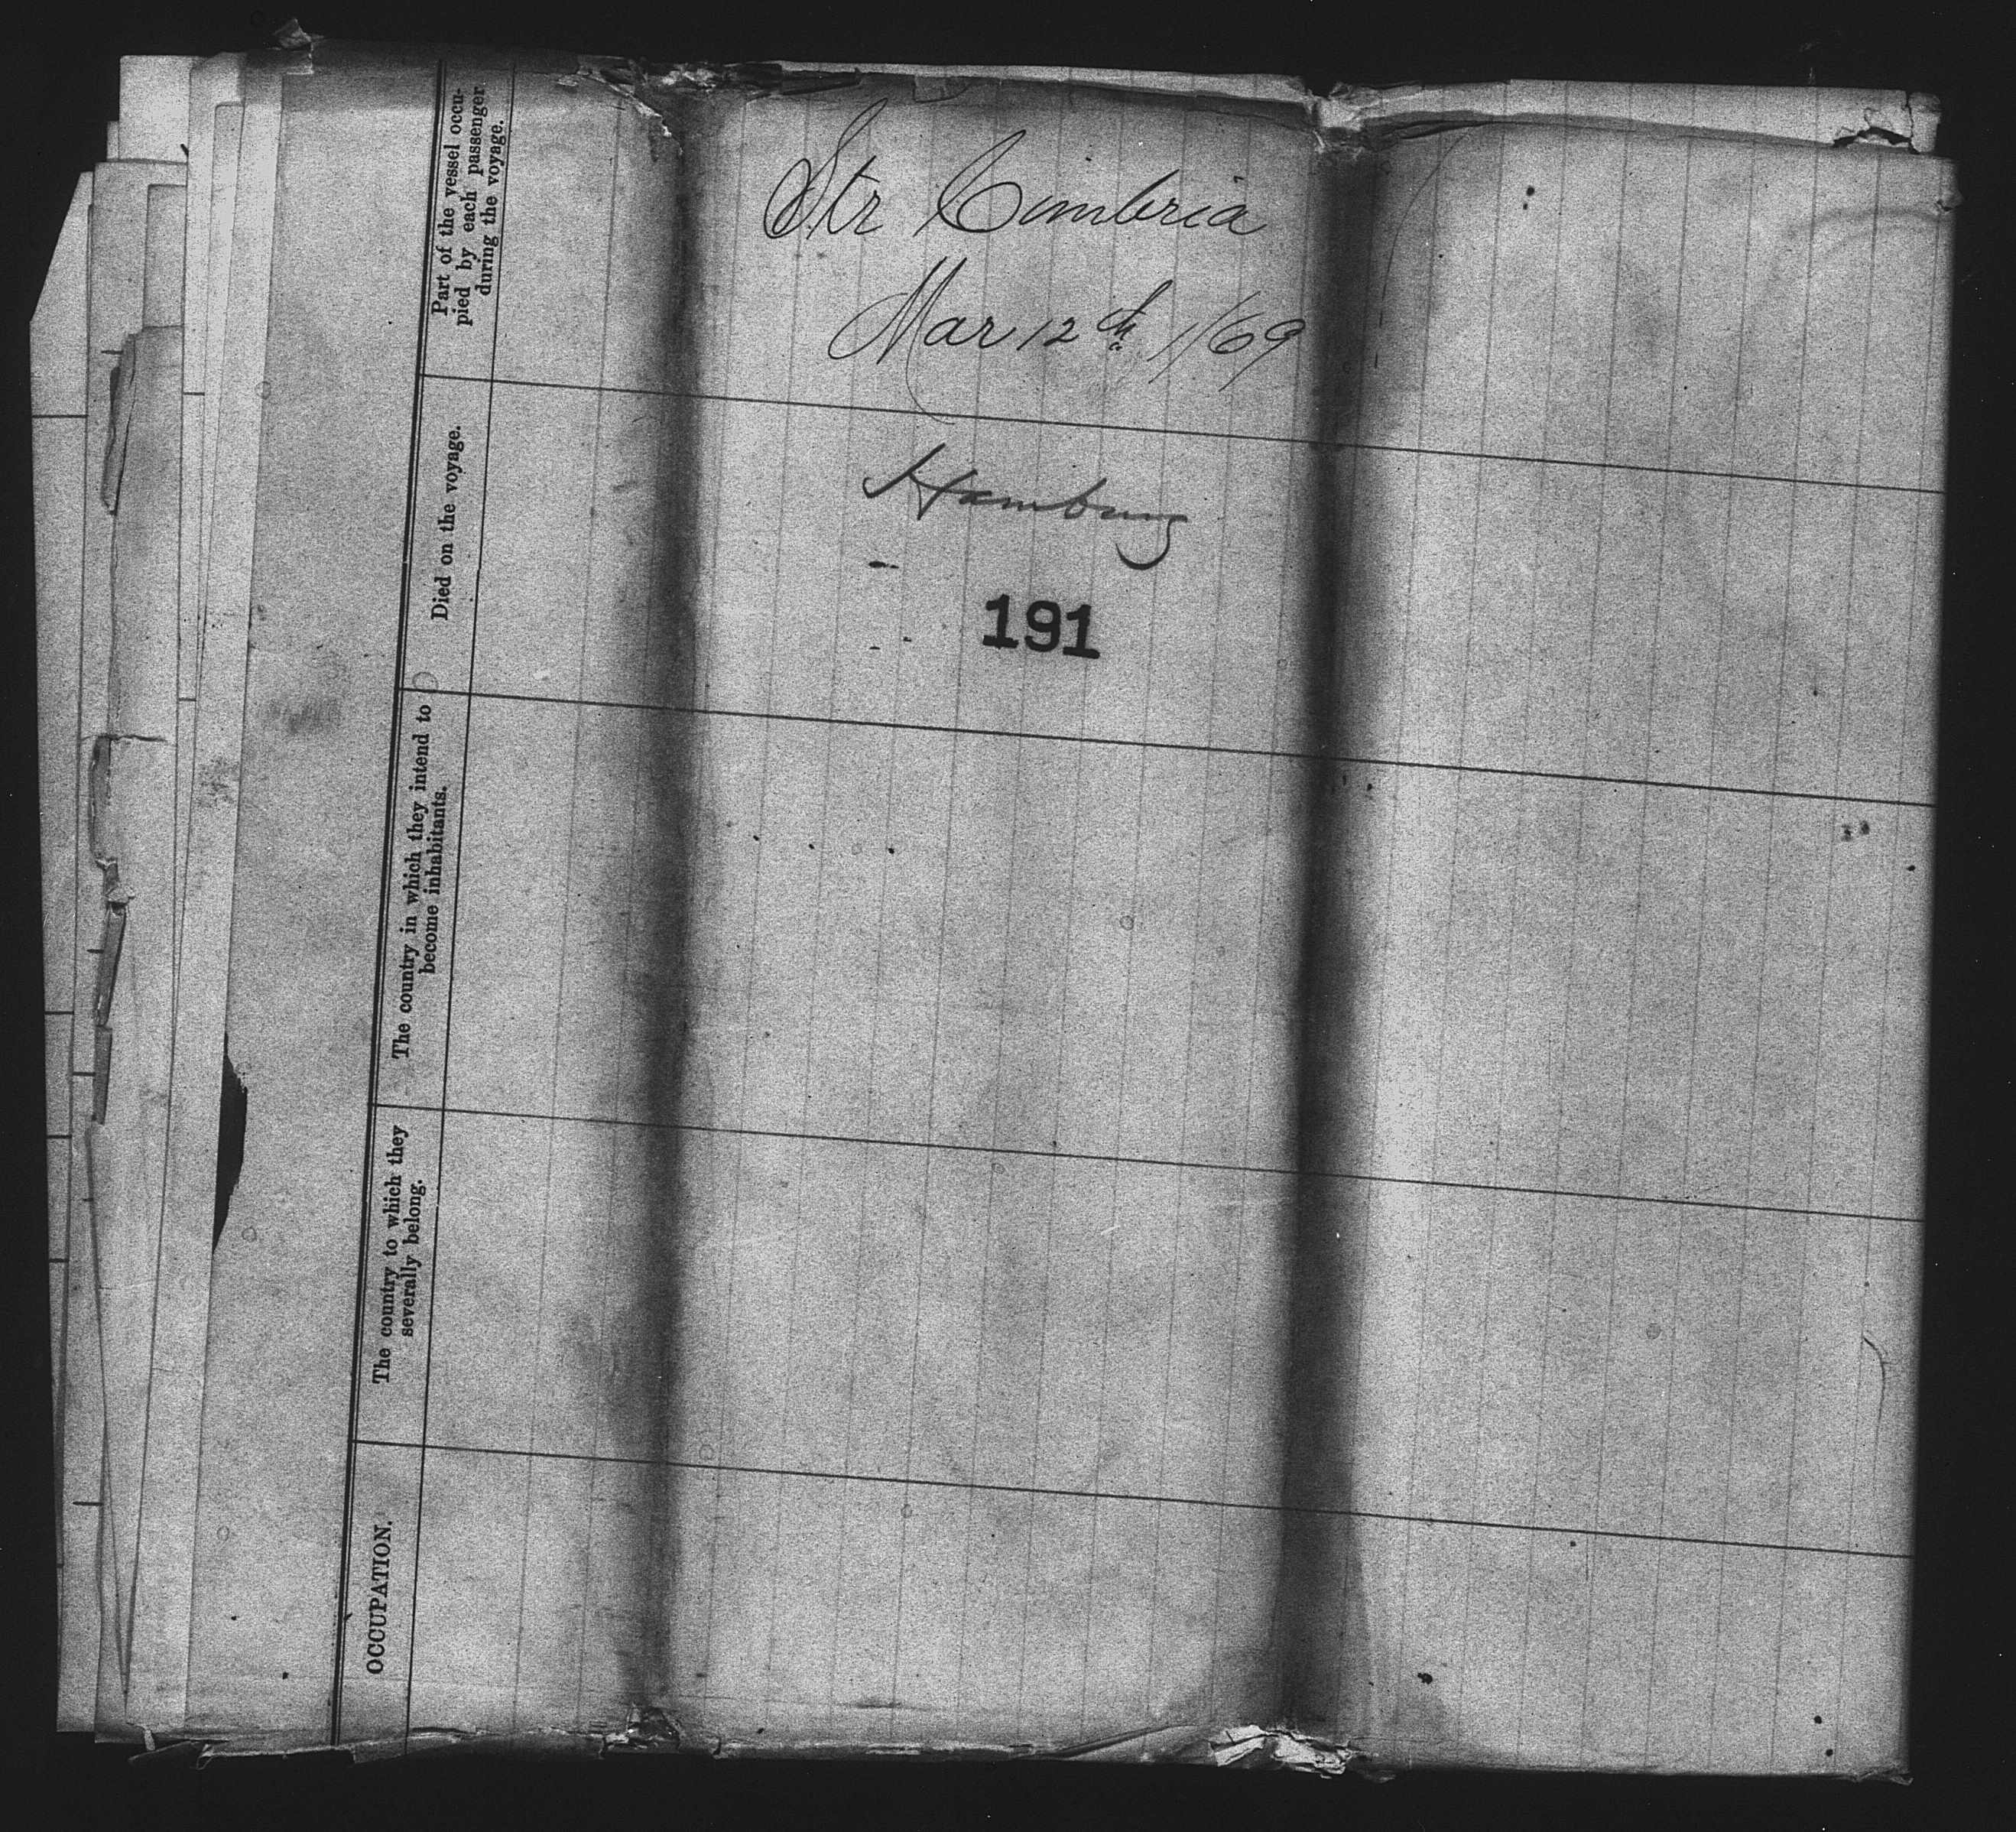 Str Cimbria
Mar 12th 1/69
Hamburg
191
Part of the vessel occu-
pied by each passenger
during the voyage.
Died on the voyage.
The country in which they intend to
become inhabitants.
The country to which they
severally belong.
OCCUPATION.